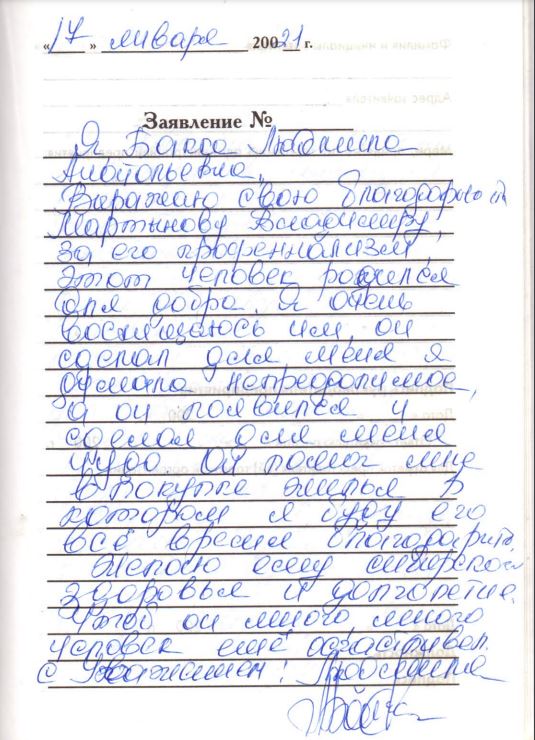 «17» января 20021 г.
Заявление №
Я Бакса Людмила
Анатольевна,
Выражаю свою благодарность
Мартынову Владимиру,
за его профеннализм,
этот человек родился
для добра. Я очень
восхищаюсь им, он
сделал для меня я
думала непреодолимое,
а он появился и
сделал для меня
чудо он помог мне
в покупке жилья в
котором я буду его
всё время благодарить.
Желаю ему сибирского
здоровья и долголетие.
Чтоб он много, много
человек ещё осчастливел.
с Уважением: Людмила